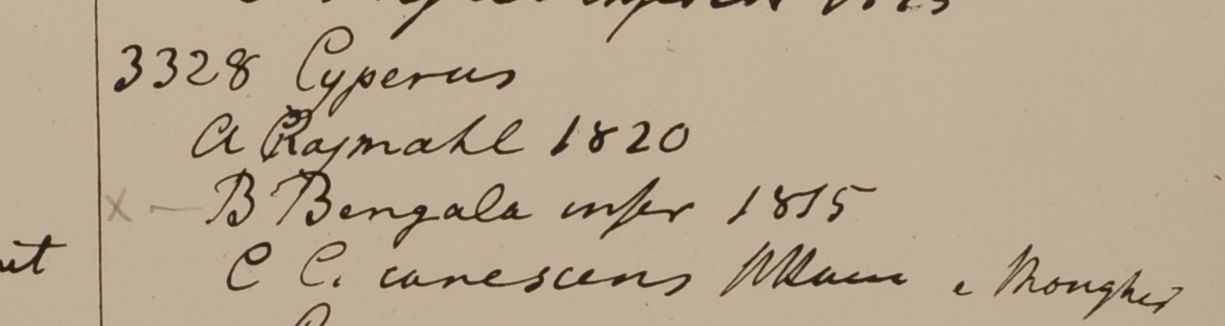 1815
3328 Cyperus
A Rajmahl 1820
x — B Bengala infer 1815
C C. canescens e Mongher